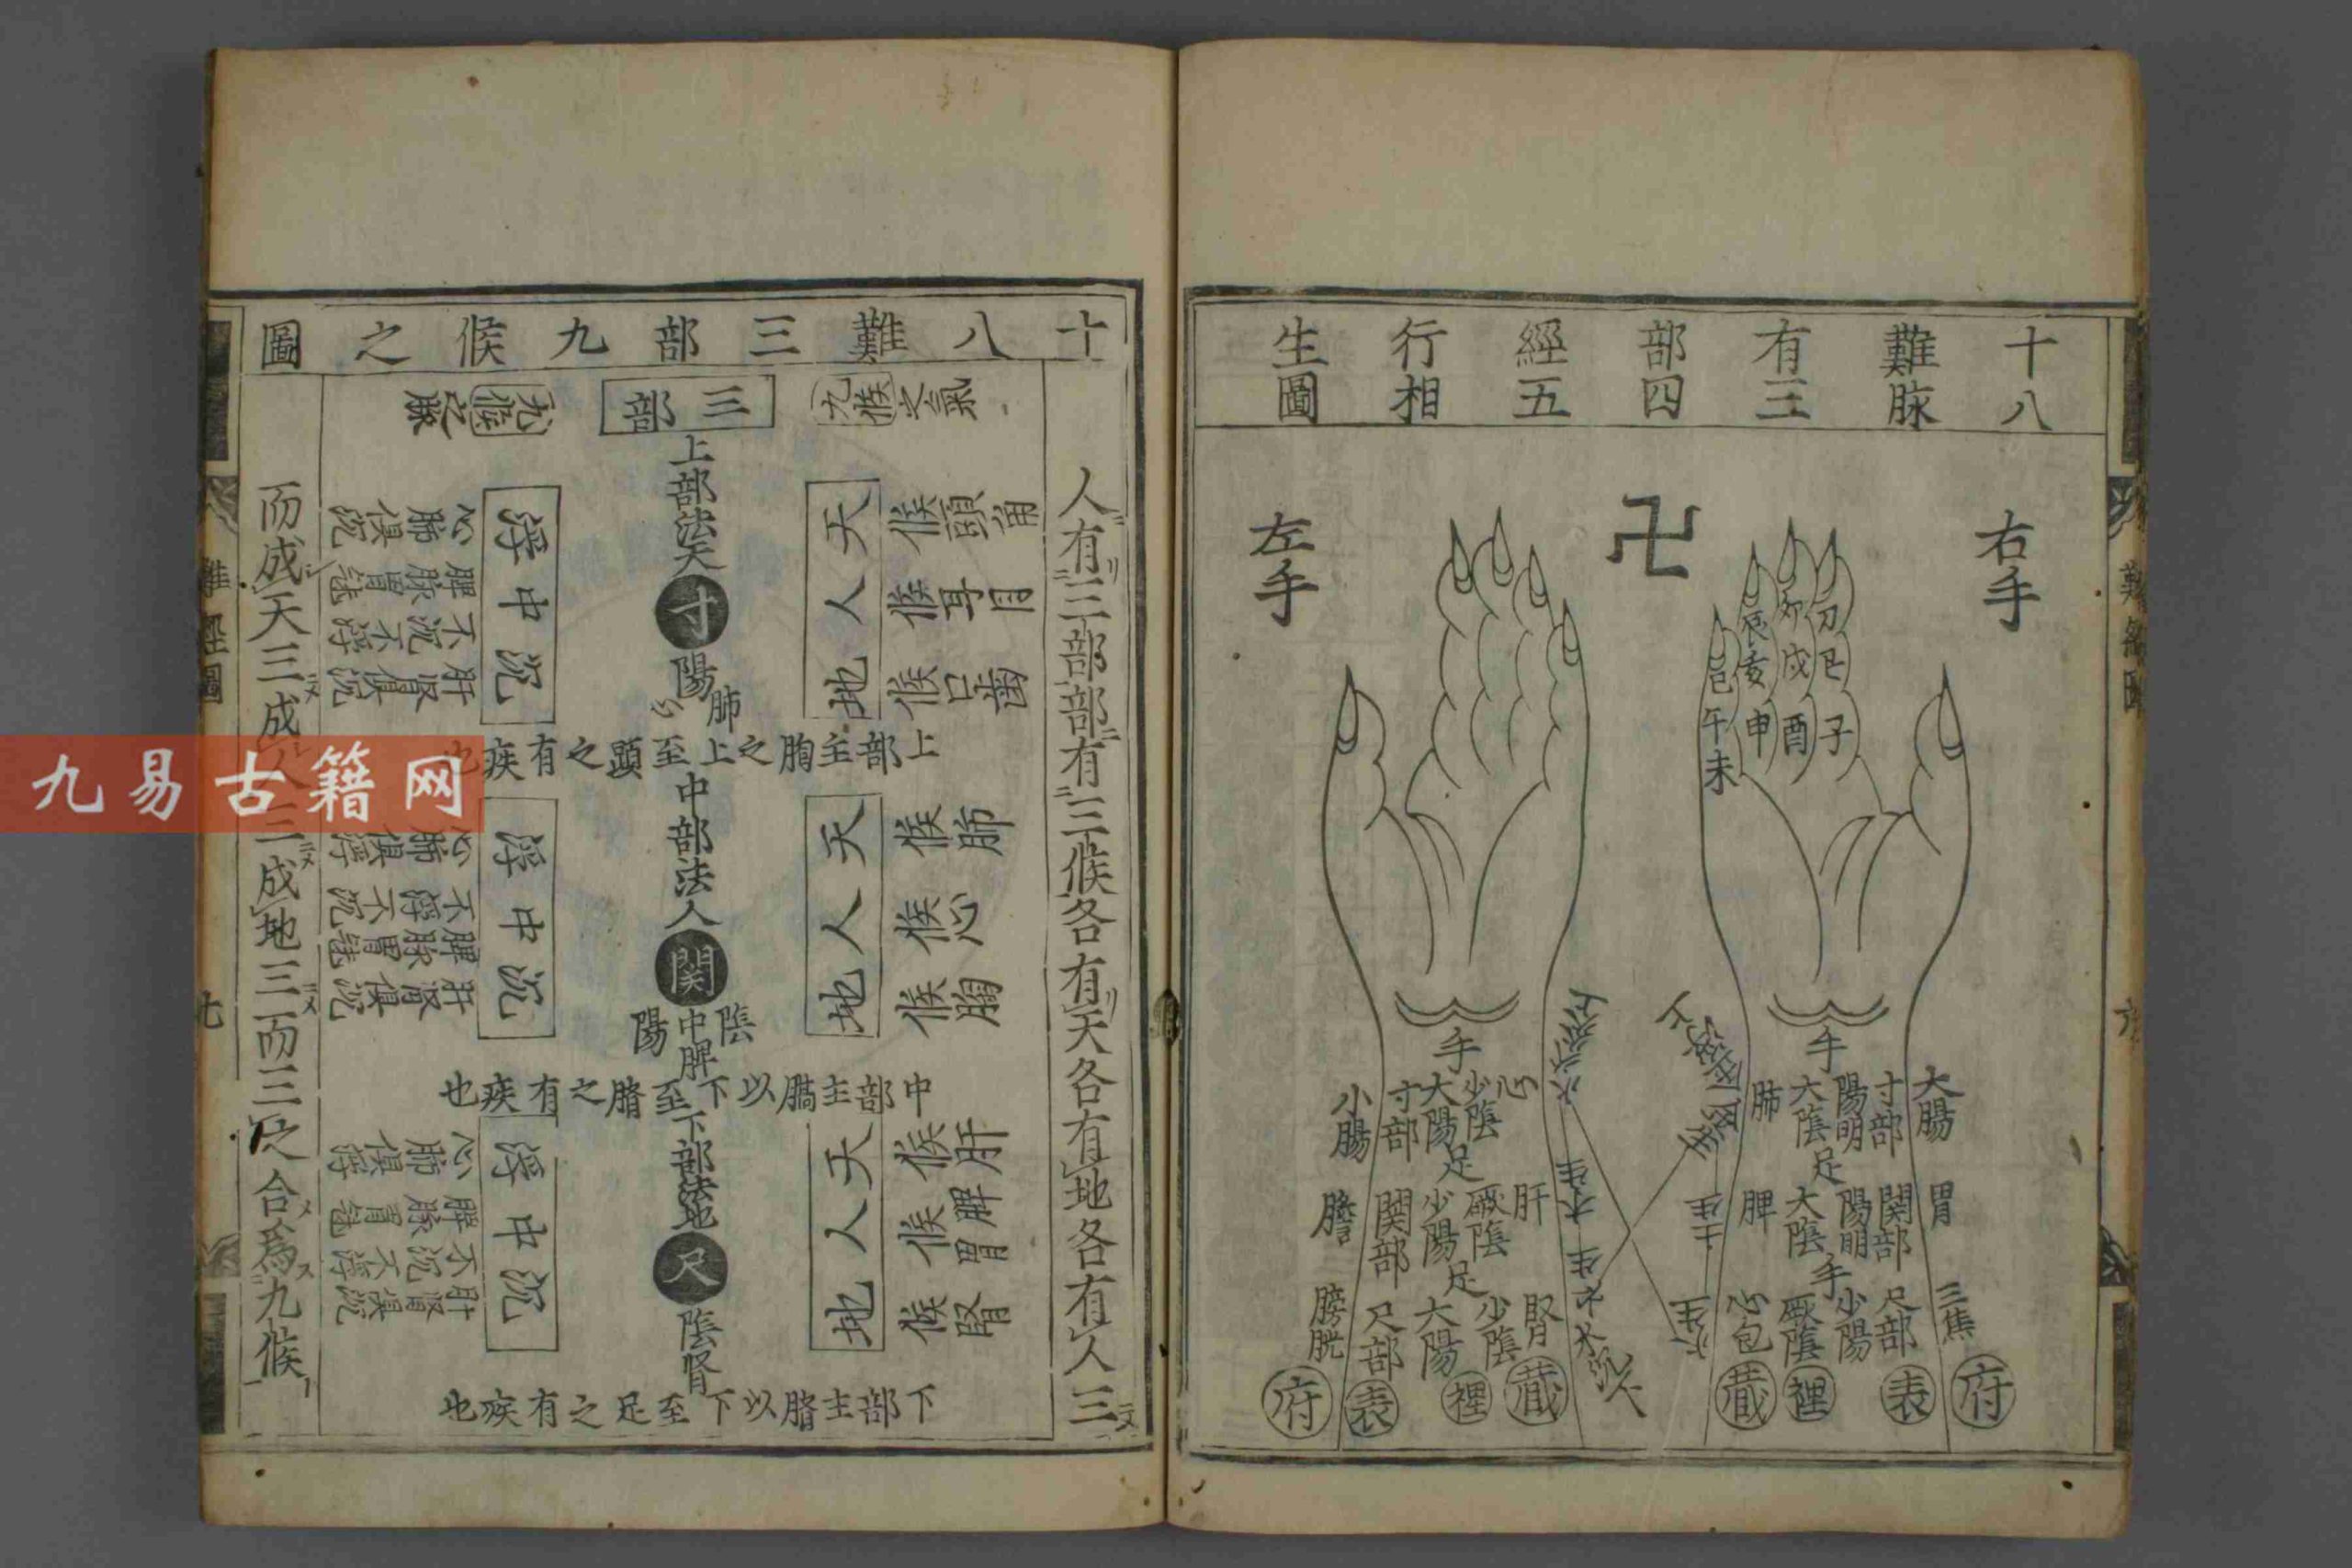 十八
難脉
有三
部四
經五
行相
生圖
右手
左手
卍
卯
戌
巳
辰
亥
午
申
酉
子
未
手
大腸
寸部
陽明
大陰
肺
足
胃
関部
陽明
大陰
脾
手
三焦
尺部
少陽
厥陰
心包
府
表
裡
蔵
手
心
少陰
大陽
寸部
小腸
足
肝
厥陰
少陽
関部
膽
足
腎
少陰
大陽
尺部
膀胱
蔵
裡
表
府
十八難三部九候之圖
人有三部部有三候各有天各有地各有人三
九候之氣
三部
九候之脉
上部法天
寸
陽
肺
心
天人地
候頭角
候耳目
候口齒
浮中沉
心肺俱沉
脾脉胃
不沉不浮
肝腎俱沉
上部主胸之上至頭之有疾也
中部法人
関
陰
中
陽
脾
天人地
候肺
候心
候胸
浮中沉
心肺俱浮
不浮不沉
脾脉胃
肝腎俱沉
中部主膈以下至臍之有疾也
下部法地
尺
陰
腎
天人地
候肝
候脾胃
候腎
浮中沉
心肺俱浮
脾脉胃
不沉不浮
肝腎俱沉
下部主臍以下至足之有疾也
而成天三成人三成地三而三之合爲九候
難經圖
七
九易古籍网